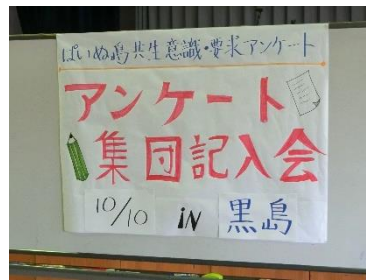 ぱいぬ島共生意識・要求アンケート
アンケート
集団記入会
10/10 iN 黒島